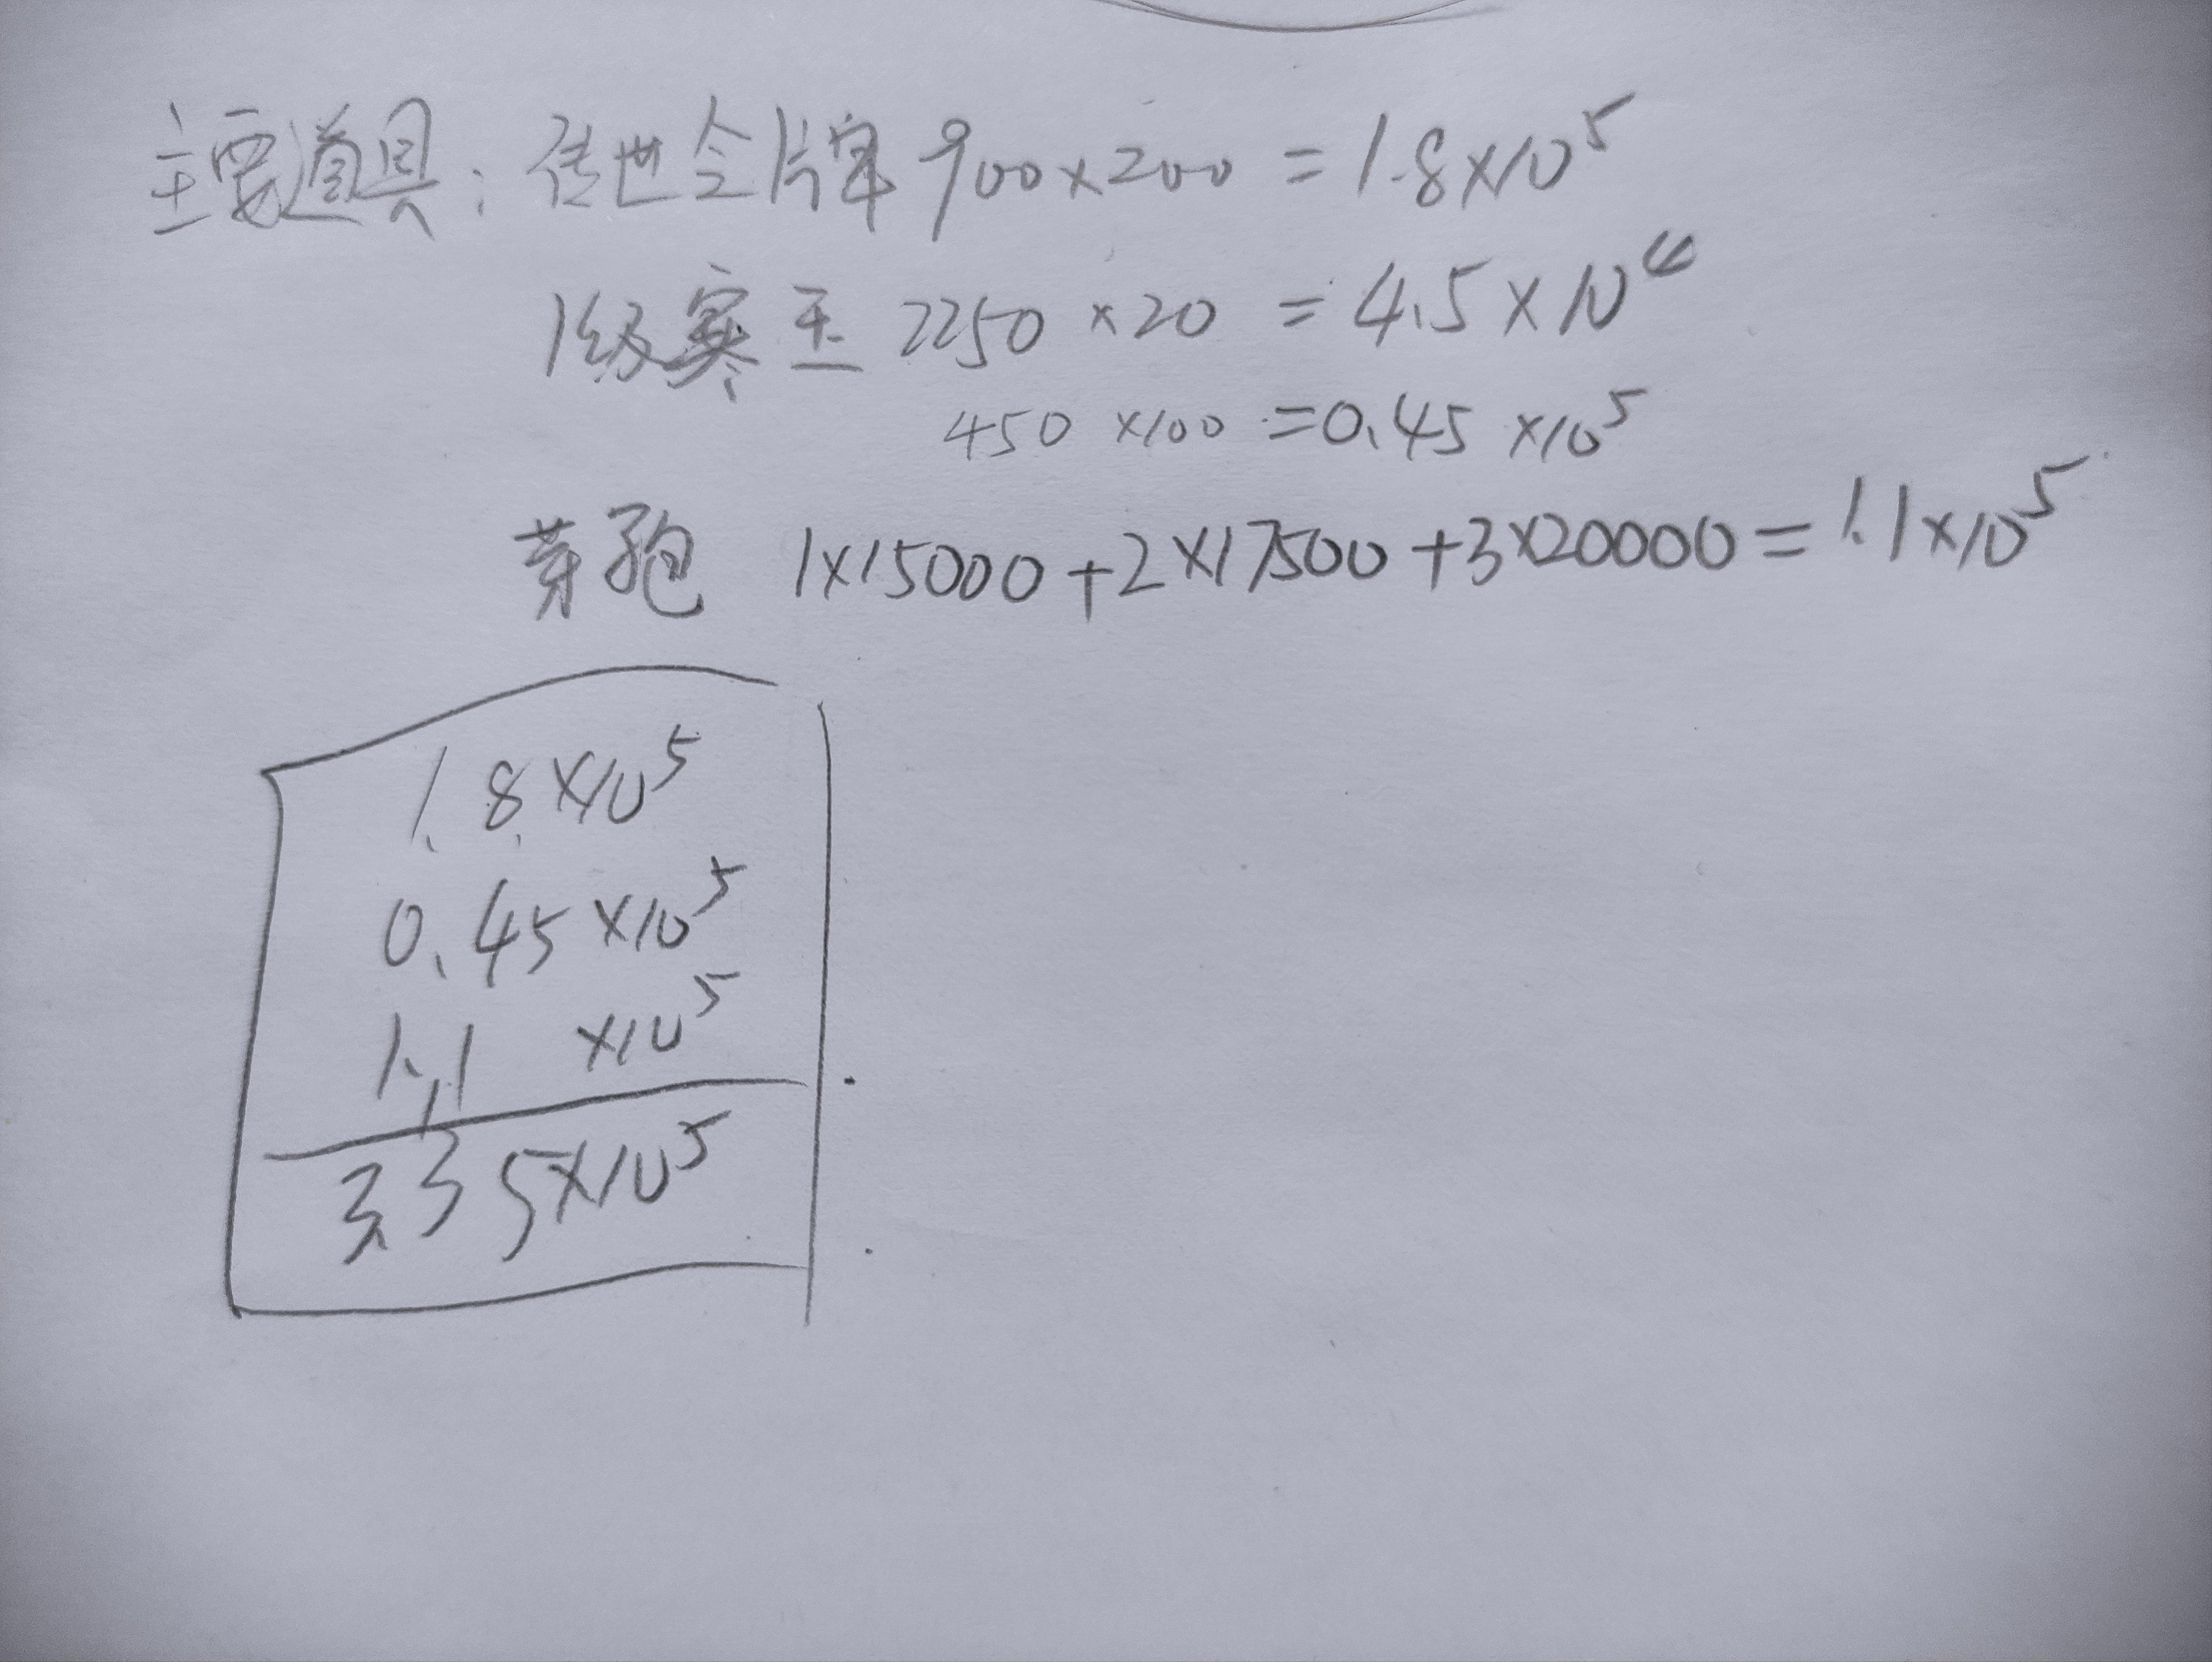 主要道具：传世令牌 900×200 = 1.8×10⁵
1级寒玉 2250 ×20 = 4.5×10⁴
450 ×100 =0.45 ×10⁵
芽孢 1×15000+2×17500+3×20000=1.1×10⁵
1.8×10⁵
0.45×10⁵
1.1 ×10⁵
3.35×10⁵